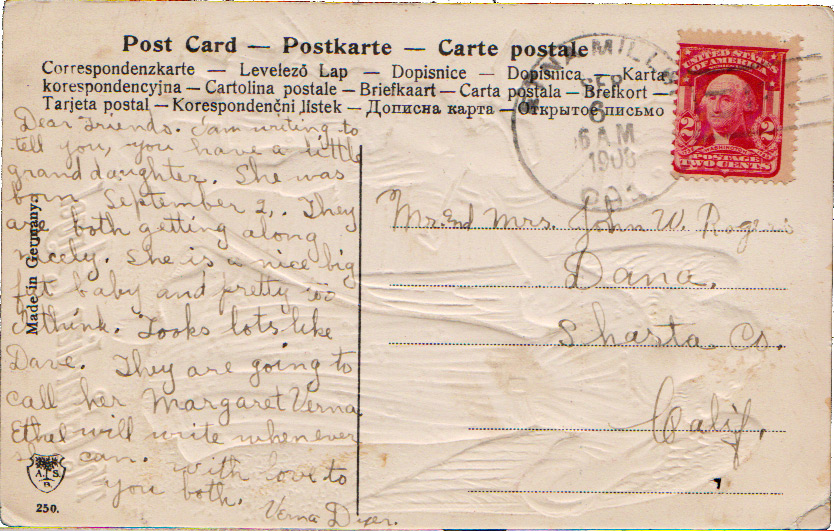 Post Card — Postkarte — Carte postale
Correspondenzkarte — Levelező Lap — Dopisnice — Dopisnica — Karta
korespondencyjna — Cartolina postale — Briefkaart — Carta postala — Brefkort —
Tarjeta postal — Korespondenčni listek — Дописна карта — Открытое письмо
MILLS
SEP
6
6 AM
1908
CAL
UNITED STATES
OF AMERICA
2 2
WASHINGTON
POSTAGE
TWO CENTS
Dear Friends. I am writing to
tell you, you have a little
granddaughter. She was
born September 2,. They
are both getting along
nicely. She is a nice big
fat baby and pretty too
I think. Looks lots like
Dave. They are going to
call her Margaret Verna.
Ethel will write whenever
she can. With love to
you both.
Verna Dyer.
Mr. and Mrs. John W. Rogers
Dana,
Shasta Co.
Calif.
Made in Germany.
A. S.
B.
250.